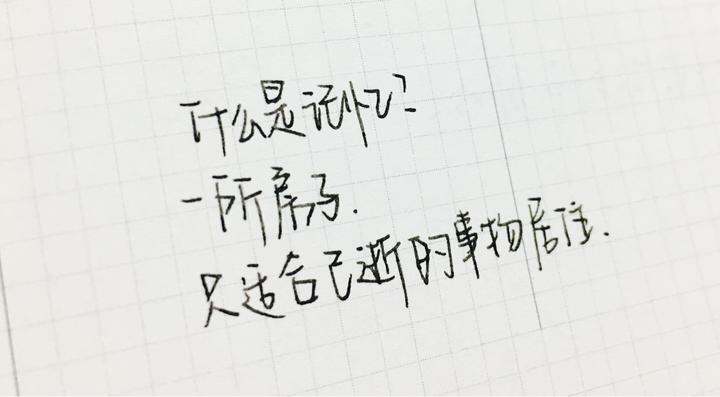 什么是记忆?
一所房子.
只适合已逝的事物居住.